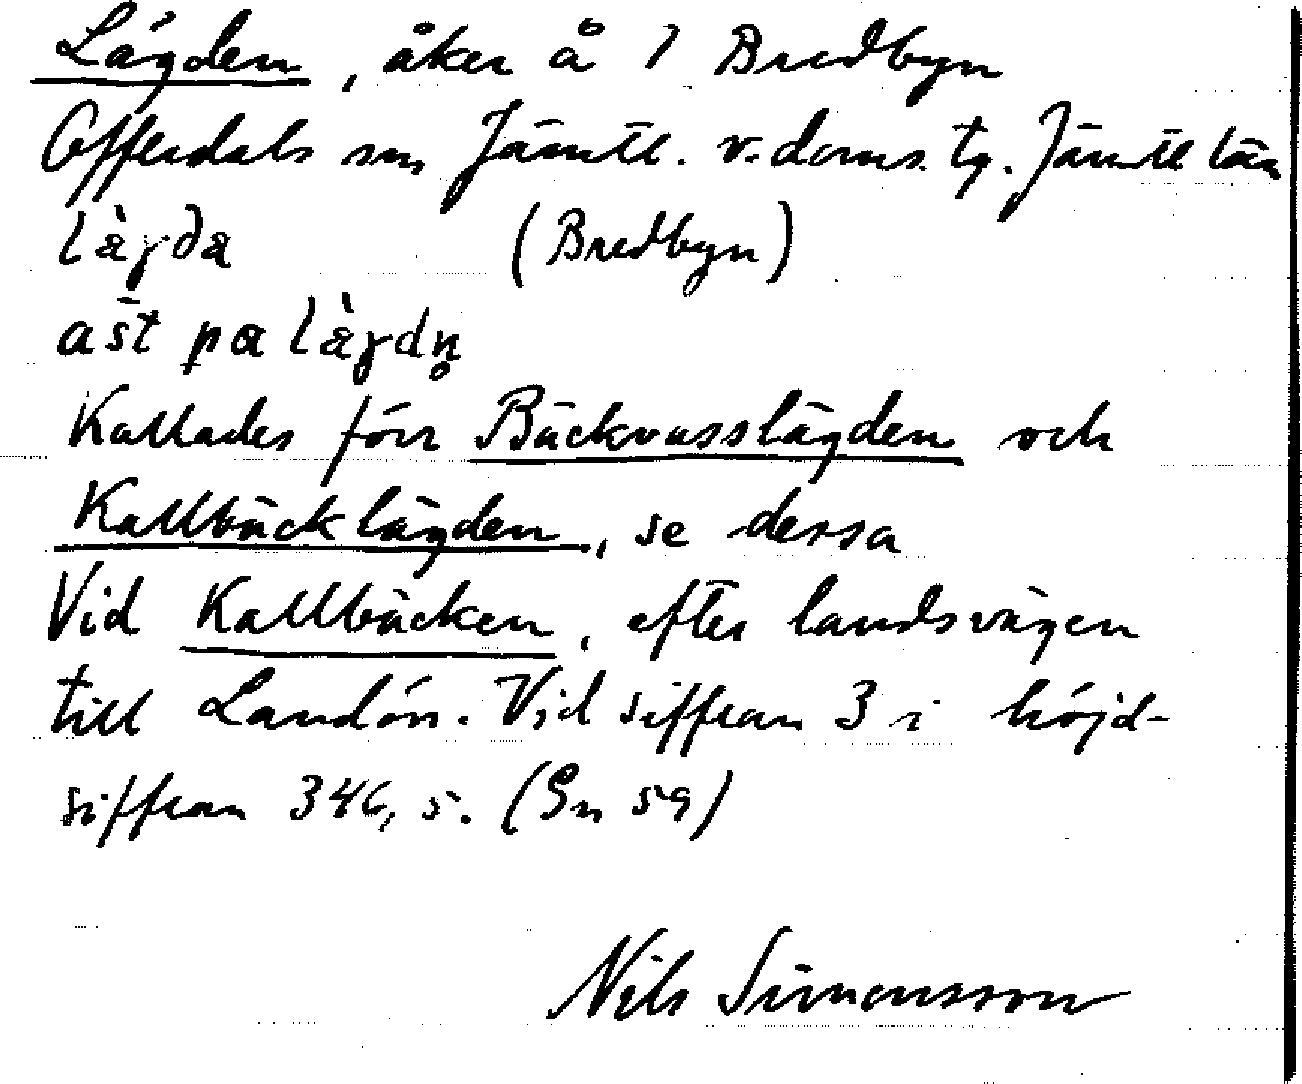 Lägden, åker å 1 Bredbyn
Offerdals sn, Jämtl. v. doms. tg. Jämtl län
(Bredbyn)
Kallades förr Bäckvasslägden och
Kallbäcklägden, se dessa
Vid Kallbäcken, efter landsvägen
till Landön. Vid siffran 3 i höjd-
siffran 346, 5. (Gn 59)
Nils Simonsson